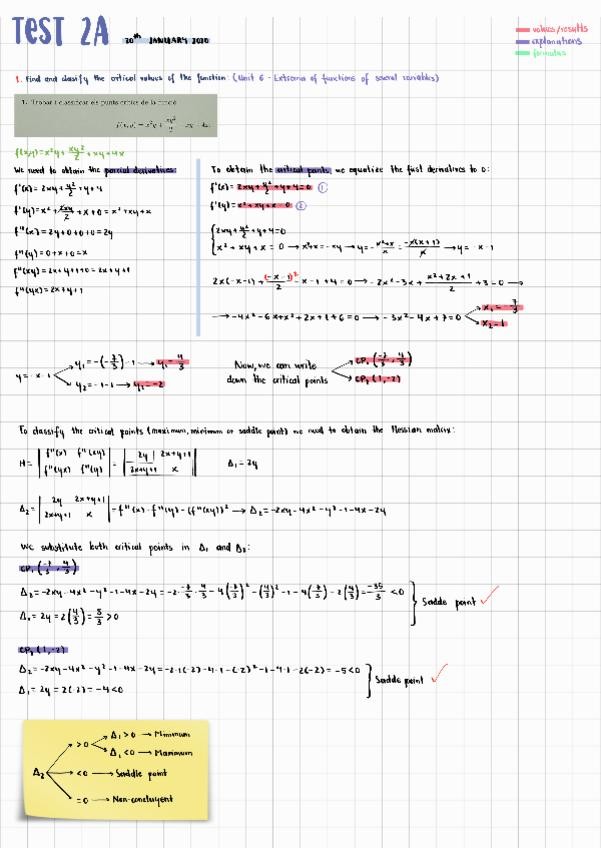 TEST 2A 20th JANUARY 2020
values/results
explanations
formulas
1. Find and clasify the critical values of the function: (Unit 6 - Extrema of functions of several variables)
1. Trobar i classificar els punts crítics de la funció
f(x,y) = x²y + xy²/2 + xy + 4x
We need to obtain the parcial derivatives:
f'(x) = 2xy + y²/2 + y + 4
f'(y) = x² + 2xy/2 + x + 0 = x² + xy + x
f''(x) = 2y + 0 + 0 + 0 = 2y
f''(y) = 0 + x + 0 = x
f''(xy) = 2x + y + 1 + 0 = 2x + y + 1
f''(yx) = 2x + y + 1
To obtain the critical points, we equalize the first derivatives to 0:
f'(x) = 2xy + y²/2 + y + 4 = 0 ①
f'(y) = x² + xy + x = 0 ②
2xy + y²/2 + y + 4 = 0
x² + xy + x = 0 → x² + x = -xy → y = -x²+x/x = -x(x+1)/x → y = -x-1
2x(-x-1) + (-x-1)²/2 - x - 1 + 4 = 0 → -2x² - 3x + x²+2x+1/2 + 3 = 0 →
→ -4x² - 6x + x² + 2x + 1 + 6 = 0 → -3x² - 4x + 7 = 0 x₁ = -7/3
x₂ = 1
y = -x-1 y₁ = -(-7/3) - 1 → y₁ = 4/3
y₂ = -1-1 → y₂ = -2
Now, we can write down the critical points CP₁ (-7/3, 4/3)
CP₂ (1,-2)
To classify the critical points (maximum, minimum or saddle point) we need to obtain the Hessian matrix:
H = | f''(x) f''(xy) | = | 2y 2x+y+1 | Δ₁ = 2y
| f''(yx) f''(y) | | 2x+y+1 x |
Δ₂ = | 2y 2x+y+1 | = f''(x) · f''(y) - (f''(xy))² → Δ₂ = -2xy - 4x² - y² - 1 - 4x - 2y
| 2x+y+1 x |
We substitute both critical points in Δ₁ and Δ₂:
CP₁ (-7/3, 4/3)
Δ₂ = -2xy - 4x² - y² - 1 - 4x - 2y = -2 · -7/3 · 4/3 - 4(-7/3)² - (4/3)² - 1 - 4(-7/3) - 2(4/3) = -35/3 < 0
Saddle point ✓
Δ₁ = 2y = 2(4/3) = 8/3 > 0
CP₂ (1,-2)
Δ₂ = -2xy - 4x² - y² - 1 - 4x - 2y = -2·1·(-2) - 4·1 - (-2)² - 1 - 4·1 - 2(-2) = -5 < 0
Saddle point ✓
Δ₁ = 2y = 2(-2) = -4 < 0
Δ₂ > 0 Δ₁ > 0 → Minimum
Δ₁ < 0 → Maximum
< 0 → Saddle point
= 0 → Non-concluyent